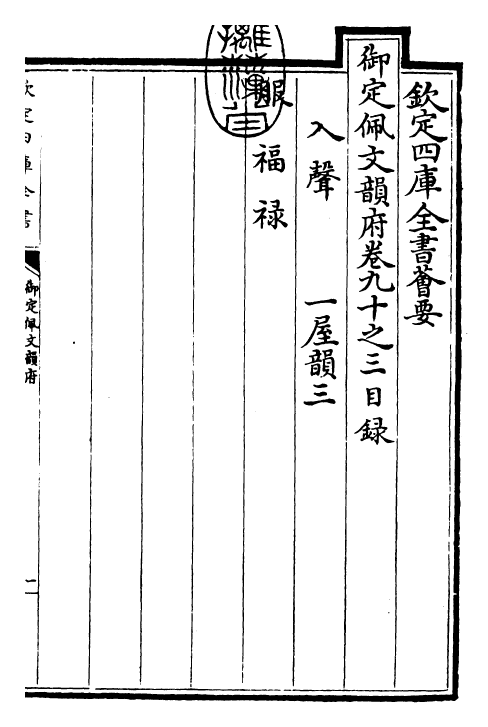 欽定四庫全書薈要
御定佩文韻府卷九十之三目錄
入聲　一屋韻三
服
福祿
欽定四庫全書
御定佩文韻府
一